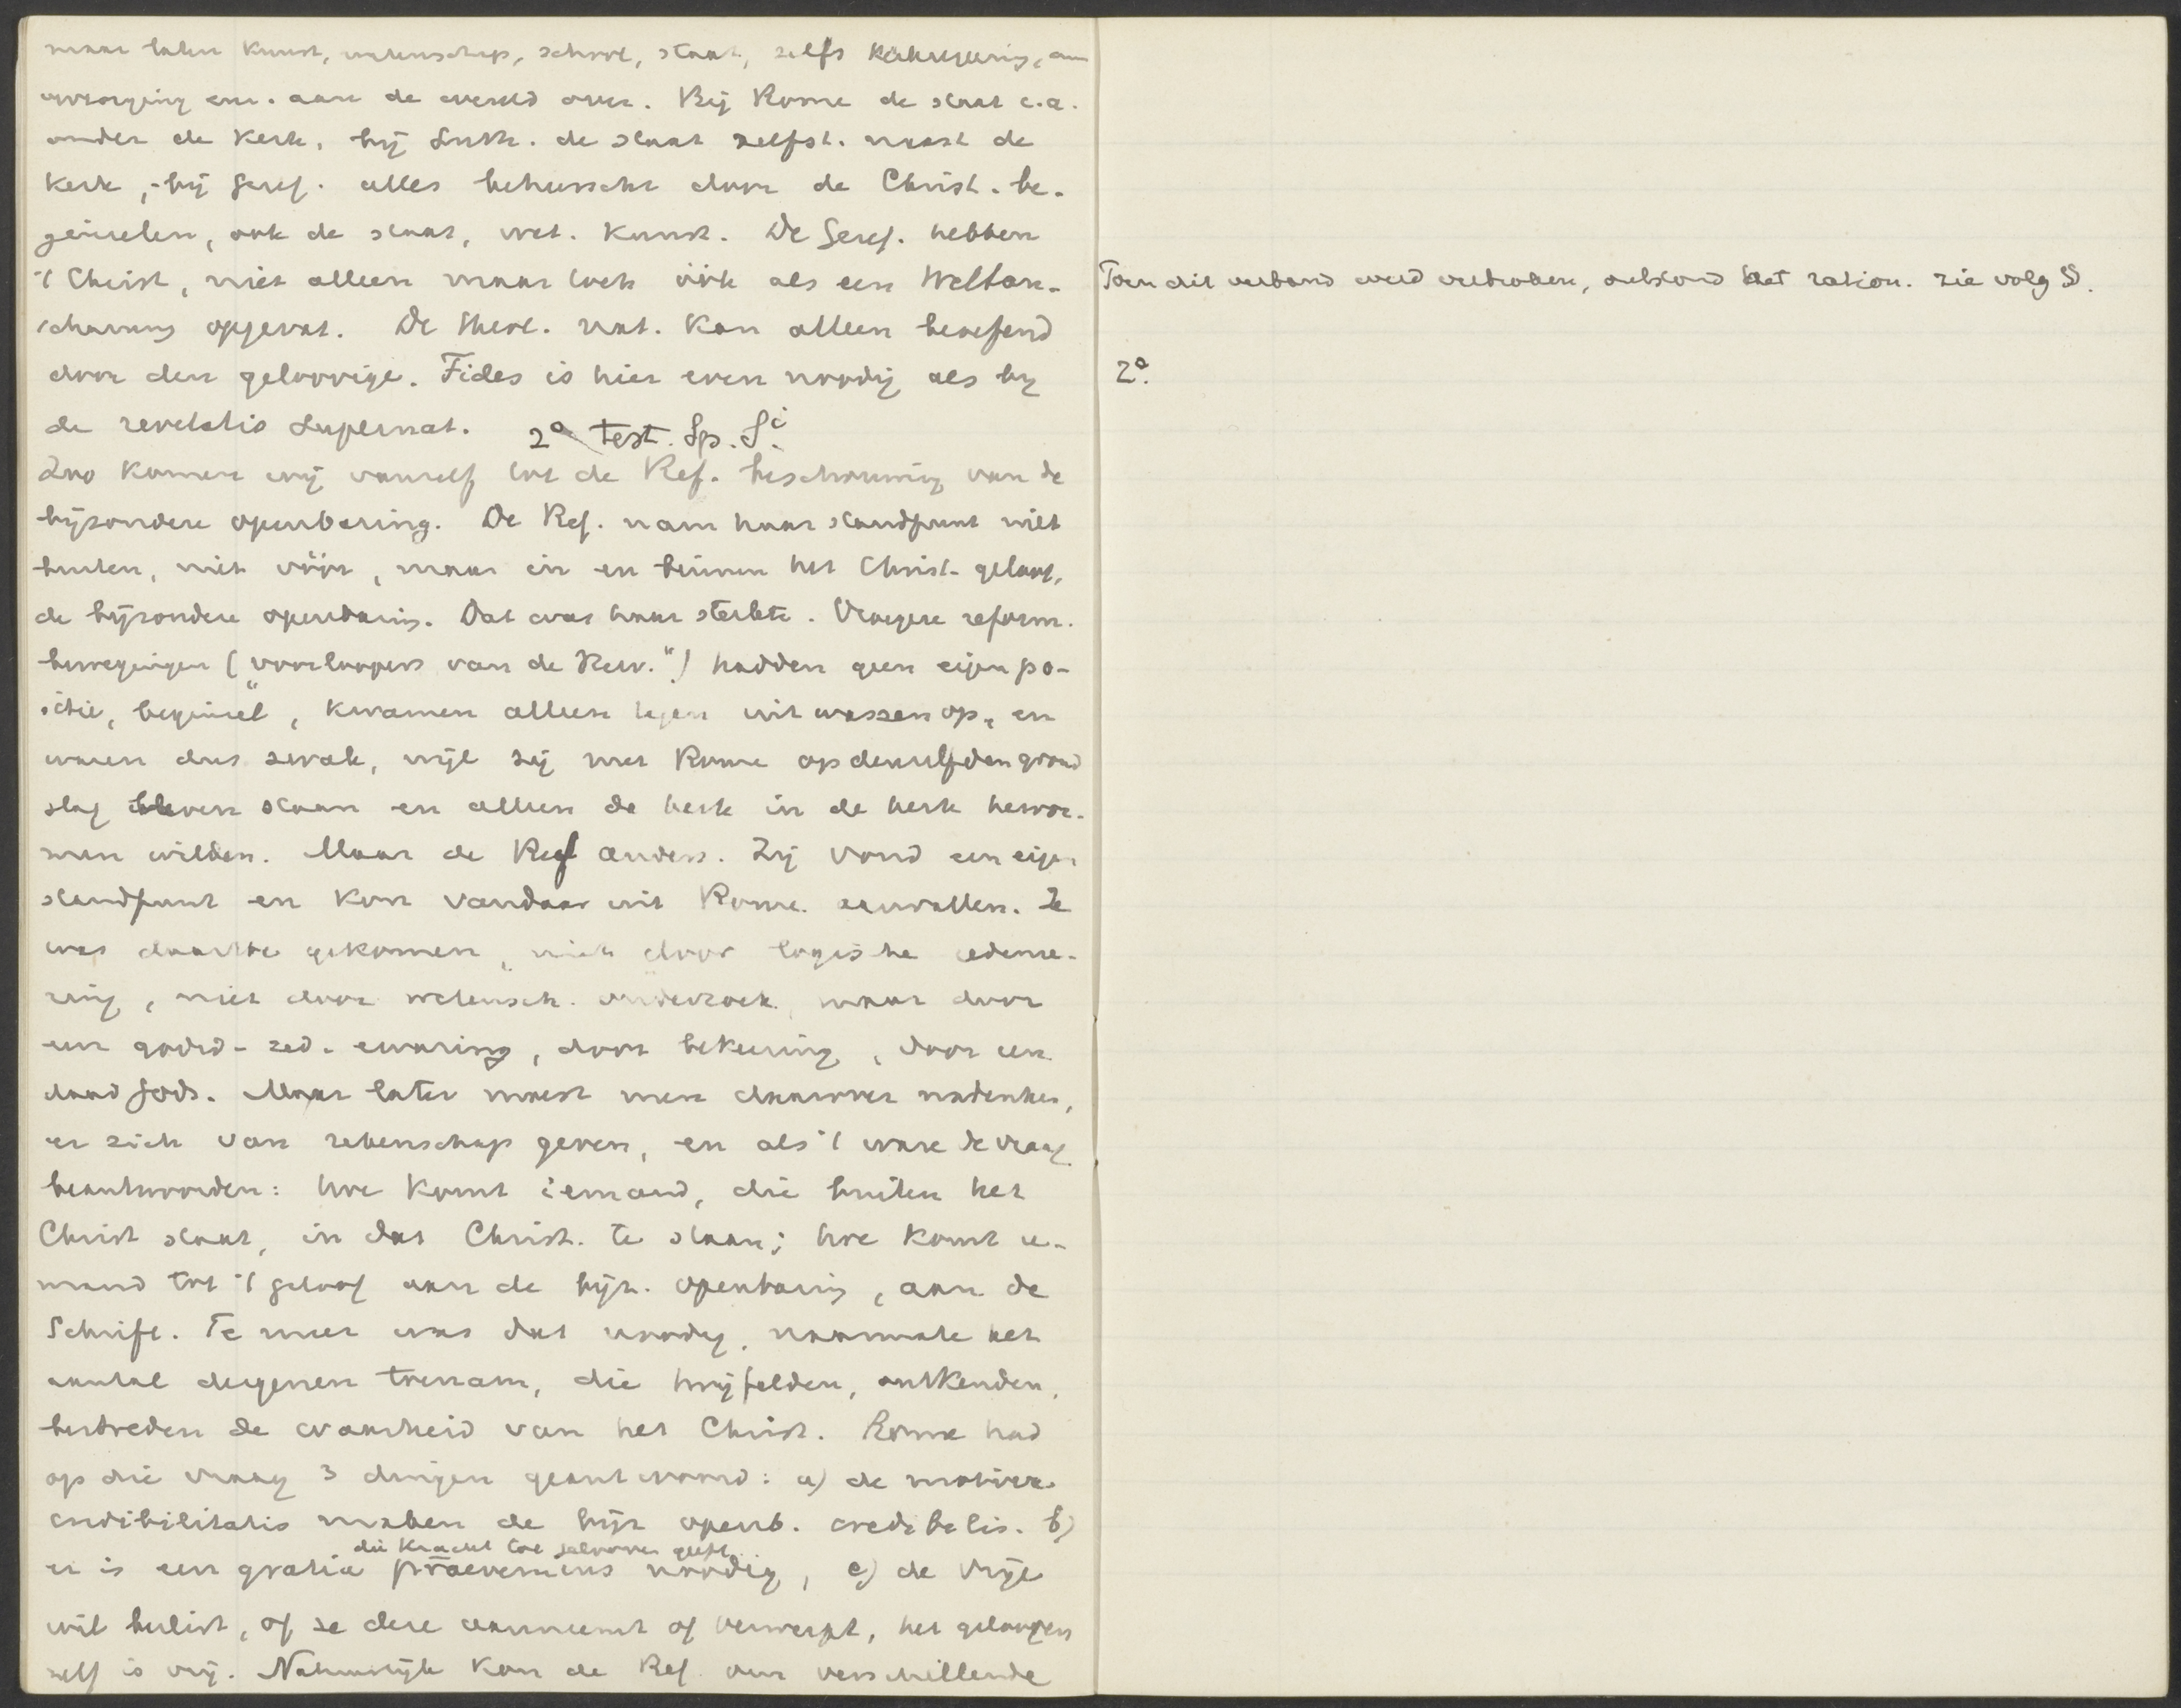 maar laten kunst, wetenschap, school, staat, zelfs
enz. aan de wereld over. Bij Rome de staat e.a.
onder de Kerk, bij Luth. de staat zelfst. naast de
Kerk, bij Geref. alles beheerscht door de Christ. be-
ginselen, ook de staat, wet. Kunst. De Geref. hebben
't Christ, niet alleen maar toch óók als een Weltan-
schauung opgevat. De theol. nat. kan alleen beoefend
door den geloovige. Fides is hier even noodig als bij
de revelatio supernat.
2° Test. Sp. Si.
Zoo komen wij vanzelf tot de Ref. beschouwing van de
bijzondere openbaring. De Ref. nam haar standpunt niet
buiten, niet vóór, maar in en binnen het Christ. geloof,
de bijzondere openbaring. Dat was haar sterkte. Vroegere reform.
bewegingen ("voorloopers van de Herv.") hadden geen eigen po-
sitie, "beginsel", kwamen alleen tegen uitwassen op, en
waren dus zwak, wijl zij met Rome op denzelfden grond
slag bleven staan en alleen de kerk in de kerk hervor-
men wilden. Maar de Ref anders. Zij vond een eigen
standpunt en kon vandaar uit Rome aanvallen. Ze
was daartoe gekomen, niet door logische redenee-
ring, niet door wetensch. onderzoek, maar door
een godsd-zed. ervaring, door bekeering, door een
daad Gods. Maar later moest men daarover nadenken,
er zich van rekenschap geven, en als 't ware de vraag
beantwoorden: hoe komt iemand, die buiten het
Christ staat, in dat Christ. te staan; hoe komt ie-
mand tot 't geloof aan de bijz. openbaring, aan de
Schrift. Te meer was dat noodig, naarmate het
aantal dergenen toenam, die twijfelden, ontkenden,
bestreden de waarheid van het Christ. Rome had
op die vraag 3 dingen geantwoord: a) de motiva
credibilitatis maken de bijz openb. credibilis. b)
die kracht tot gelooven geeft
er is een gratia praeveniens noodig, c) de vrije
wil beslist, of ze deze aanneemt of verwerpt, het gelooven
zelf is vrij. Natuurlijk kon de Ref. een verschillende
Toen dit verband werd verbroken, ontstond het ration. zie volg §.
2°.